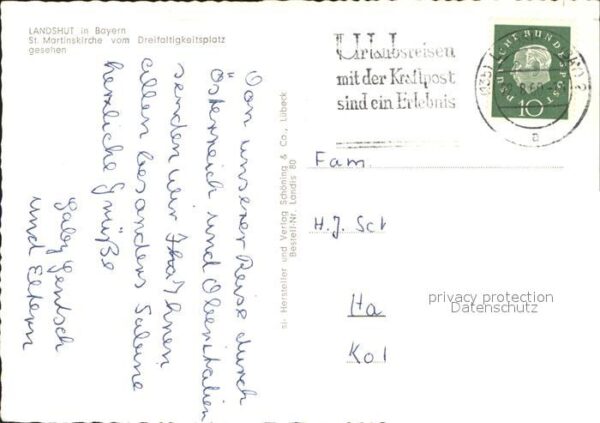 LANDSHUT in Bayern
St. Martinskirche vom Dreifaltigkeitsplatz
gesehen
Urlaubsreisen
mit der Kraftpost
sind ein Erlebnis
DEUTSCHE BUNDESPOST
10
a
Von unserer Reise durch
Österreich und Oberitalien
senden wir Ihnen
allen besonders Sabine
herzliche Grüße
Gaby
und Eltern
Hersteller und Verlag Schöning & Co., Lübeck
Bestell/Nr. Landis 80
Fam.
H. J. Sch
Ha
Kol
privacy protection
Datenschutz